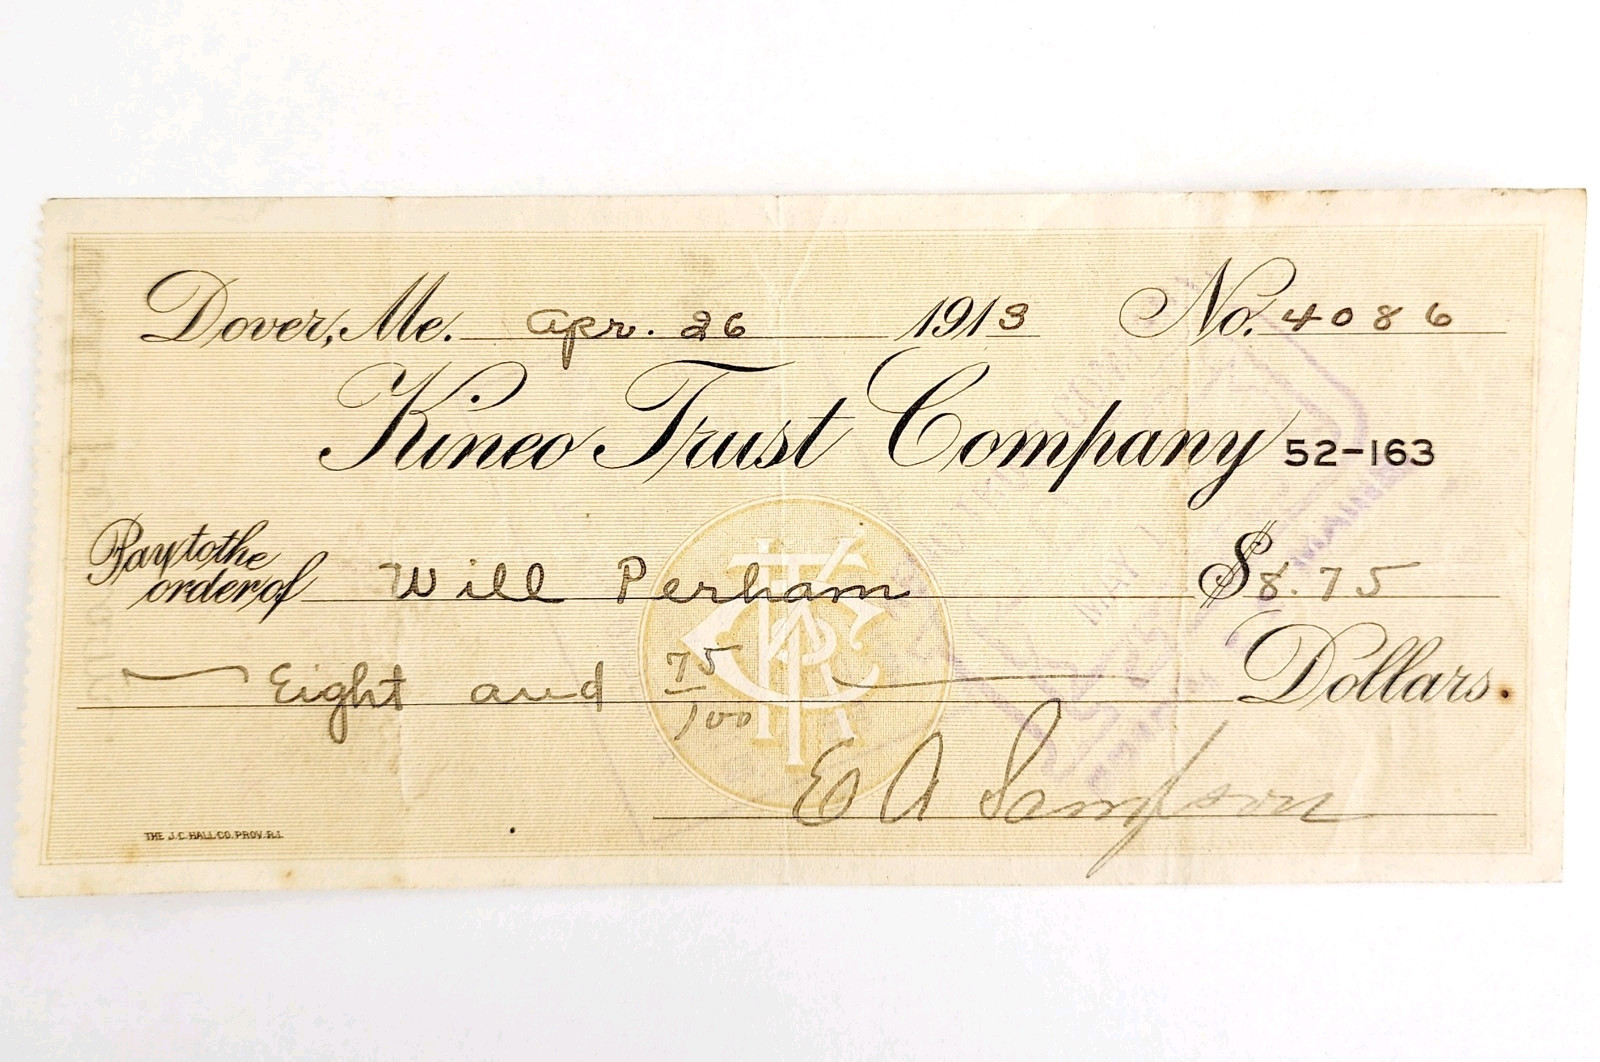 Dover, Me. Apr. 26 1913 No. 4086
Kineo Trust Company 52-163
Pay to the
order of Will Perham $8.75
Eight and 75/100 Dollars.
E A Sampson
THE J.C. HALL CO. PROV. R.I.
MAY 1